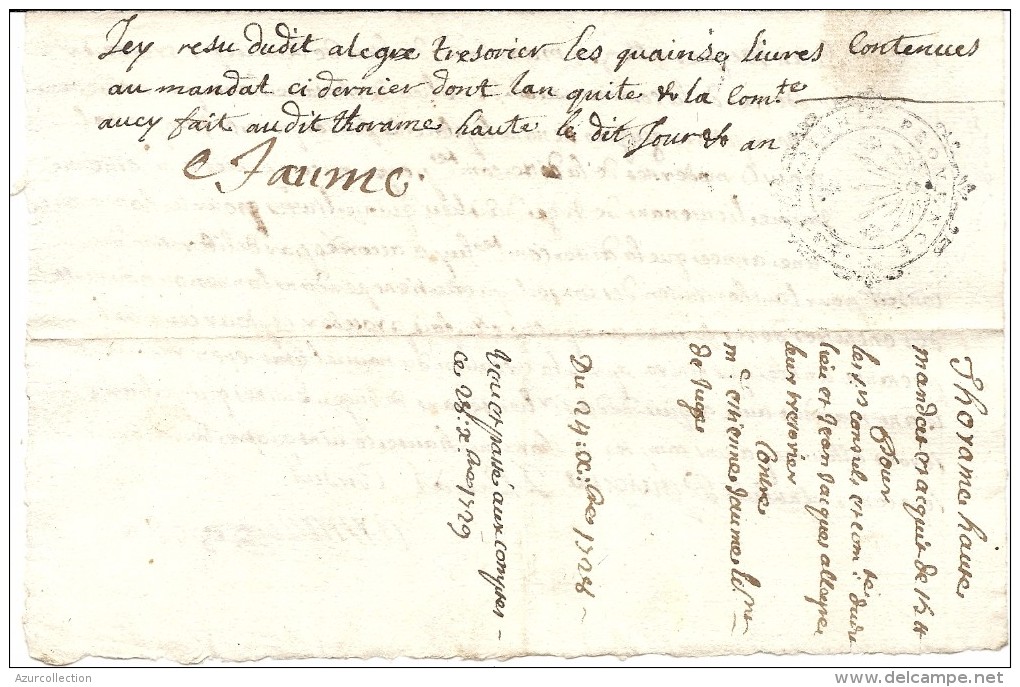 Jey resu dudit alegre tresorier les quainse livres Contenues
au mandat ci dernier dont lan quite & la Com.te
aucy fait audit thorame haute le dit Jour & an
E Jaume
PROVENCE
Thorame haute
mandat et acquit de 15 ℔
Pour
les srs consuls et com.té dudit
lieu et Jean Jacques allegre
leur tresorier
Contre
m.e etienne Jaume
de Juge
Du 24: x.bre 1728
Veu et passé aux comptes
ce 28: x.bre 1729
Azurcollection
www.delcampe.net